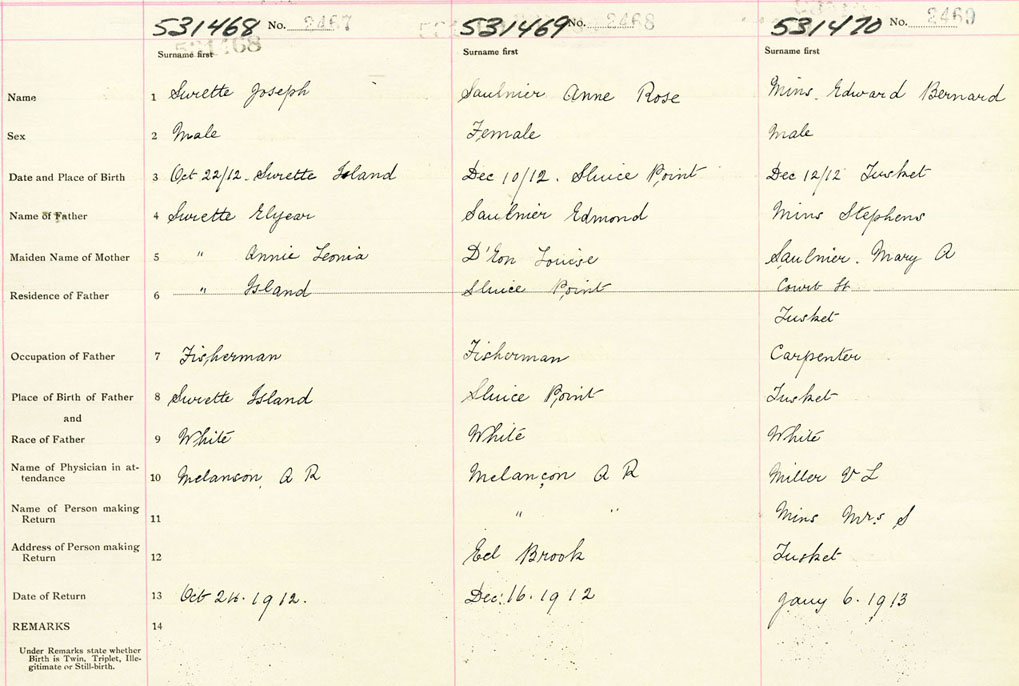 531468 No. 2467 531469 No. 2468 531470 No. 2469
531468
Surname first Surname first Surname first
Name 1 Surette Joseph Saulnier Anne Rose Mins. Edward Bernard
Sex 2 Male Female Male
Date and Place of Birth 3 Oct 22/12. Surette Island Dec 10/12. Sluice Point Dec 12/12 Tusket
Name of Father 4 Surette Elyear Saulnier Edmond Mins Stephens
Maiden Name of Mother 5 " Annie Leonia D'Eon Louise Saulnier. Mary A
Residence of Father 6 " Island Sluice Point Court St
Tusket
Occupation of Father 7 Fisherman Fisherman Carpenter
Place of Birth of Father 8 Surette Island Sluice Point Tusket
and
Race of Father 9 White White White
Name of Physician in at-
tendance 10 Melanson. A R Melançon A R Miller V L
Name of Person making
Return 11 " " Mins Mrs S
Address of Person making
Return 12 Eel Brook Tusket
Date of Return 13 Oct 24. 1912. Dec. 16. 1912 Jany 6. 1913
REMARKS 14
Under Remarks state whether
Birth is Twin, Triplet, Ille-
gitimate or Still-birth.